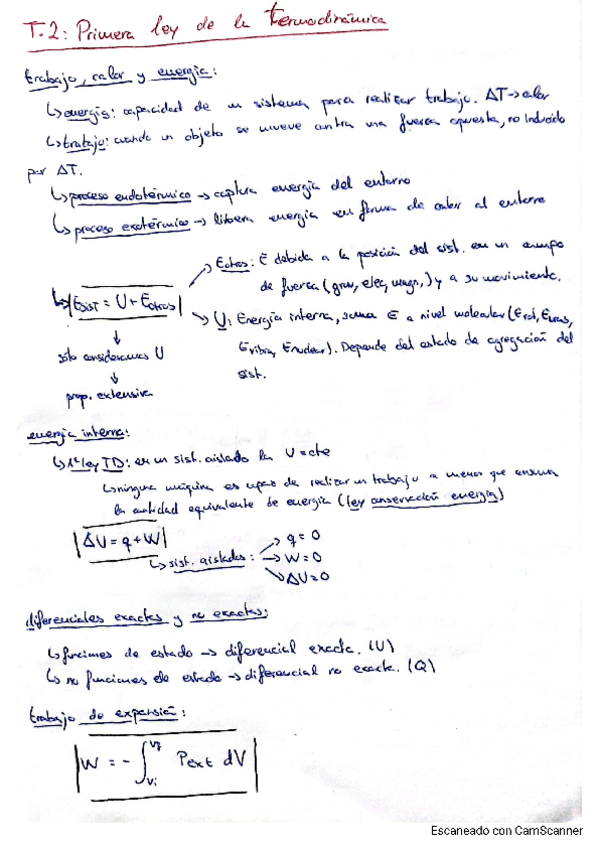 T.2: Primera ley de la termodinámica
trabajo, calor y energía:
↳ energía: capacidad de un sistema para realizar trabajo. ΔT → calor
↳ trabajo: cuando un objeto se mueve contra una fuerza opuesta, no inducido
por ΔT.
↳ proceso endotérmico → captura energía del entorno
↳ proceso exotérmico → libera energía en forma de calor al entorno
↳ |Esist = U + Eotras|
→ Eotras: E debida a la posición del sist. en un campo
de fuerza (grav, elec, magn,) y a su movimiento.
→ U: Energía interna, suma E a nivel molecular (Erot, Etras,
Evibra, Enuclear). Depende del estado de agregación del
sist.
↓
sólo consideramos U
↓
prop. extensiva
energía interna:
↳ 1ª ley TD: en un sist. aislado la U = cte
↳ ninguna máquina es capaz de realizar un trabajo a menos que consuma
la cantidad equivalente de energía (ley conservación energía)
|ΔU = q + W|
↳ sist. aislados: → q = 0
→ W = 0
→ ΔU = 0
diferenciales exactas y no exactas:
↳ funciones de estado → diferencial exacta. (U)
↳ no funciones de estado → diferencial no exacta. (Q)
trabajo de expansión:
|W = - ∫ Vi Vf Pext dV|
Escaneado con CamScanner